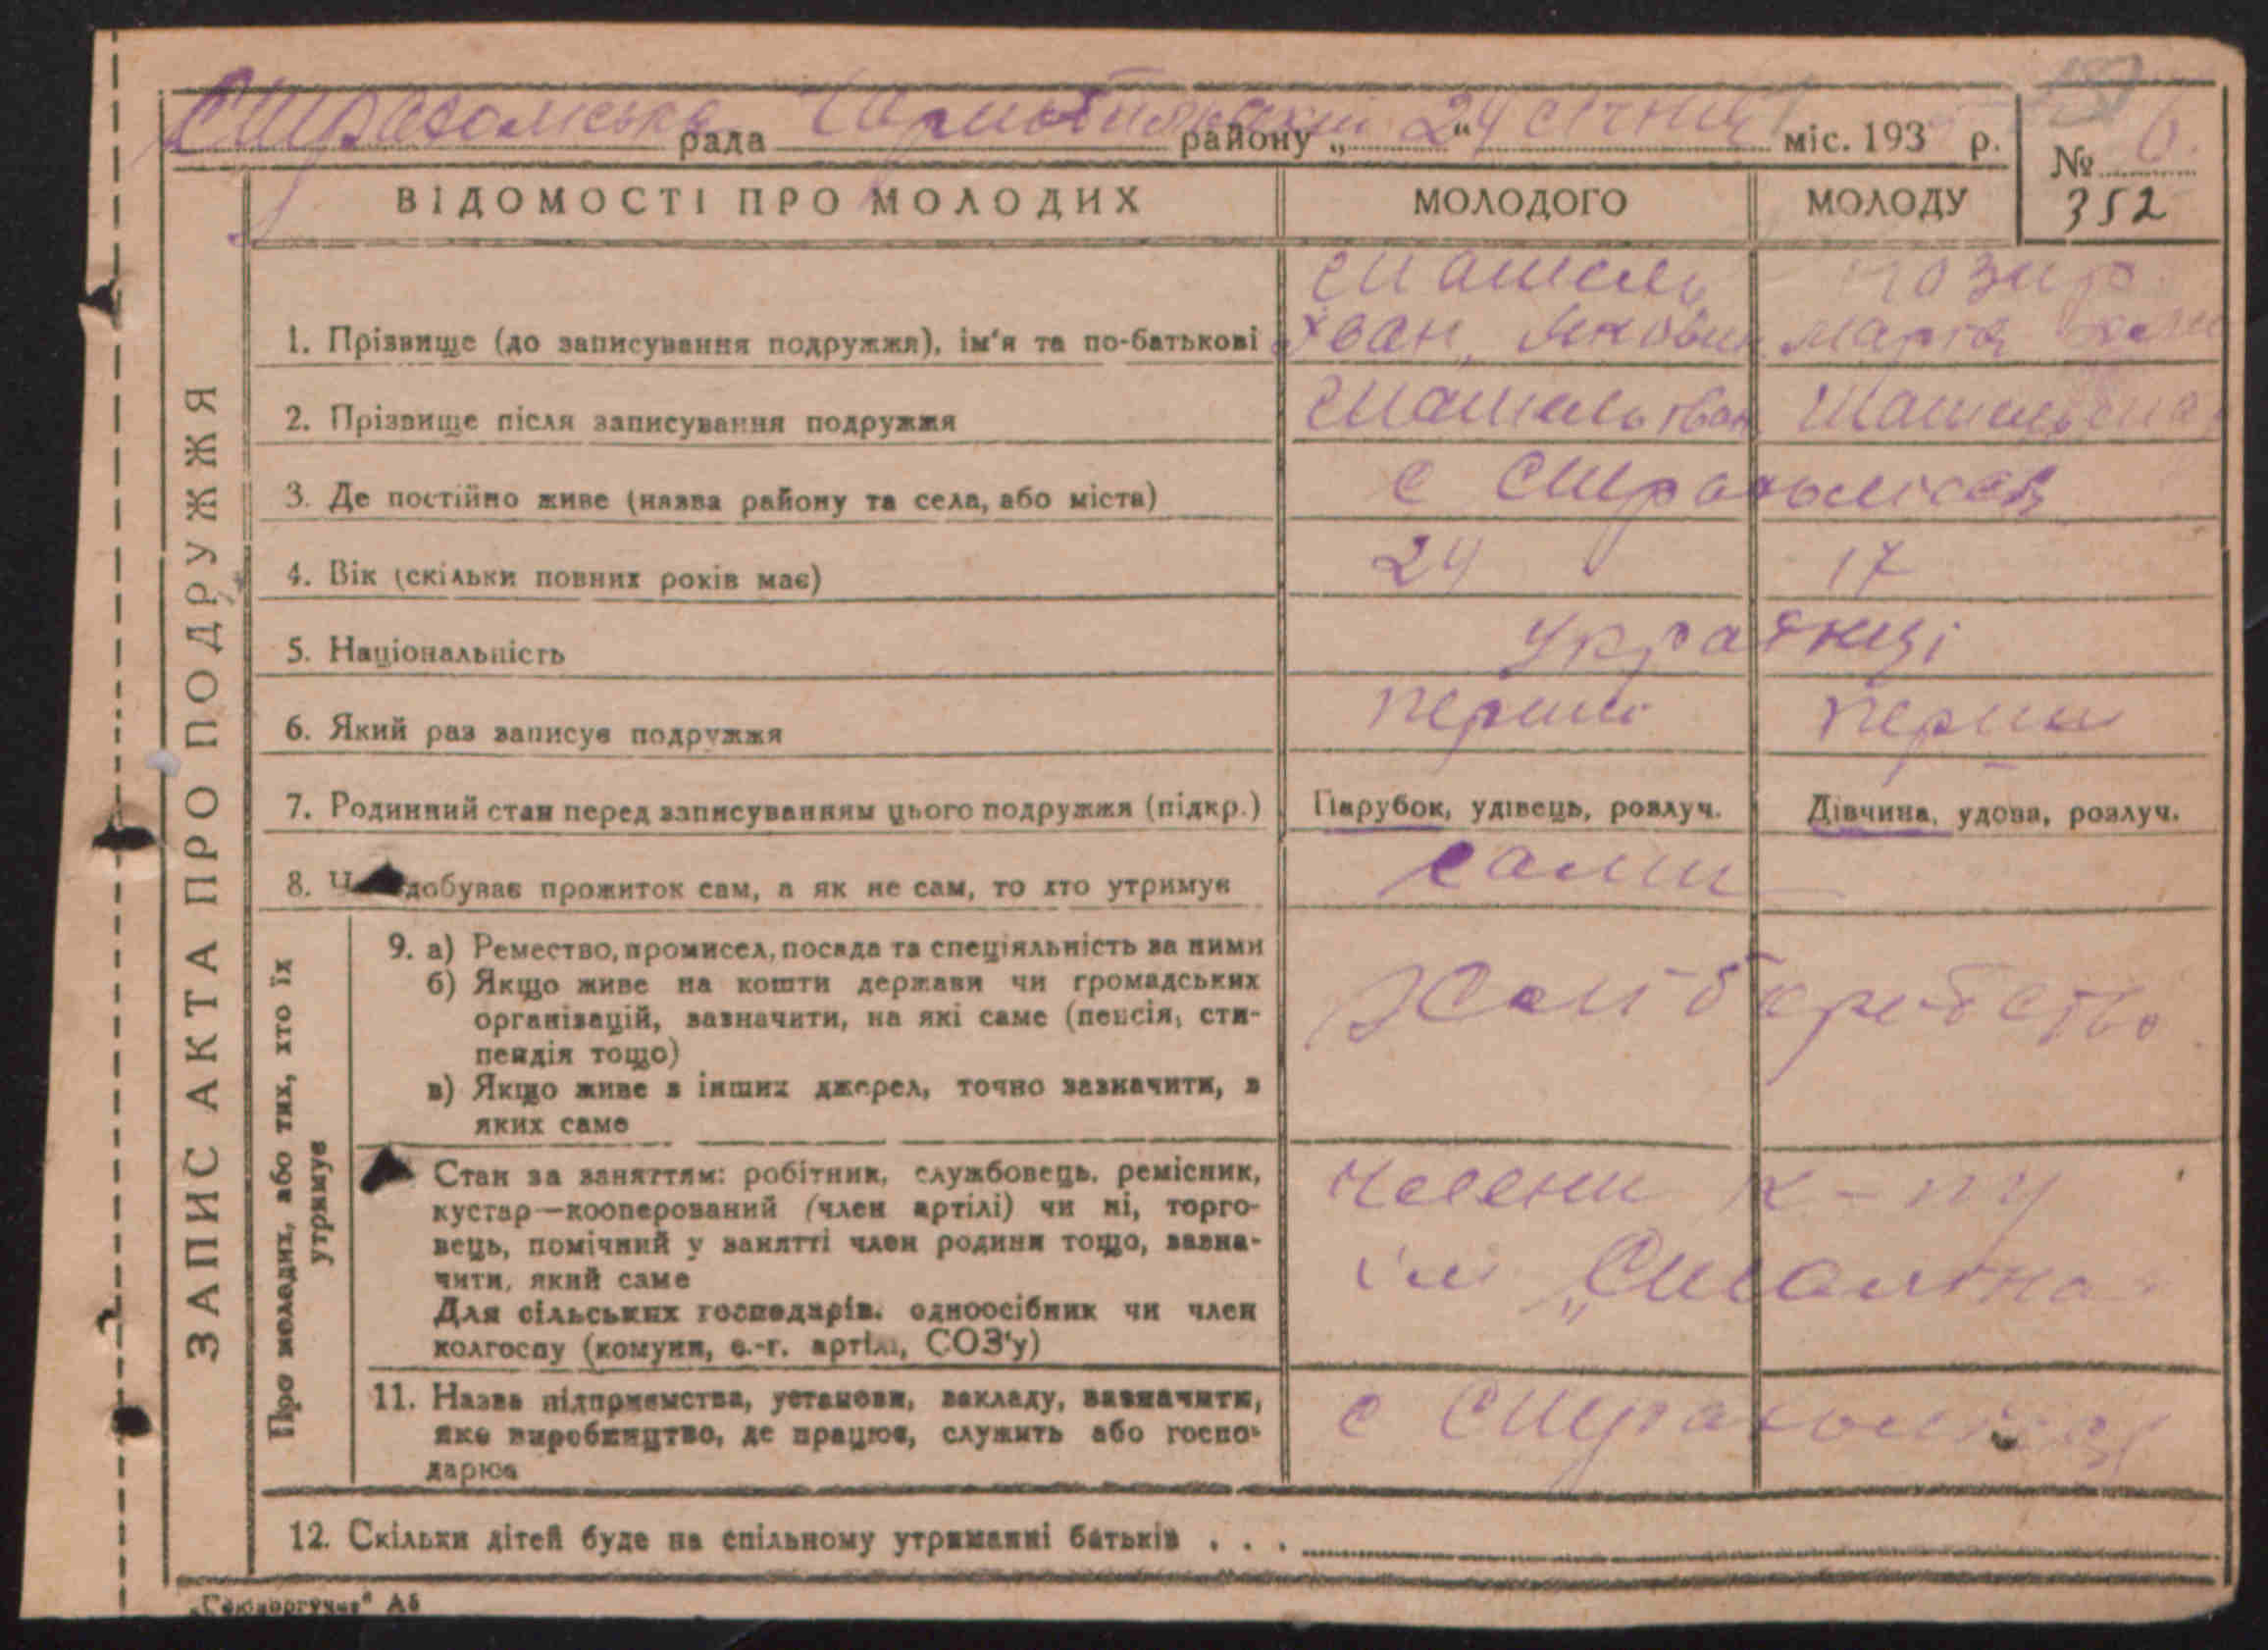 рада району „24“ січня міс. 193 р.
№ 6.
352
ВІДОМОСТІ ПРО МОЛОДИХ МОЛОДОГО МОЛОДУ
ЗАПИС АКТА ПРО ПОДРУЖЖЯ
1. Прізвище (до записування подружжя), ім'я та по-батькові
Марія
2. Прізвище після записування подружжя
3. Де постійно живе (назва району та села, або міста) с
4. Вік (скільки повних років має) 24 17
5. Національність Українці
6. Який раз записує подружжя перши перши
7. Родинний стан перед записуванням цього подружжя (підкр.) Парубок, удівець, розлуч. Дівчина, удова, розлуч.
8. добуває прожиток сам, а як не сам, то хто утримує сами
Про молодих, або тих, хто їх
утримує
9. а) Ремество, промисел, посада та спеціяльність за ними
б) Якщо живе на кошти держави чи громадських
організацій, зазначити, на які саме (пенсія, сти-
пендія тощо)
в) Якщо живе з інших джерел, точно зазначити, з
яких саме
Хліборобство
Стан за заняттям: робітник, службовець, ремісник,
кустар—кооперований (член артілі) чи ні, торго-
вець, помічний у занятті член родини тощо, зазна-
чити, який саме
Для сільських господарів, одноосібник чи член
колгоспу (комуни, с.-г. артілі, СОЗ'у)
члени к-пу
ім „Сталіна“
11. Назва підприємства, установи, закладу, зазначити,
яке виробництво, де працює, служить або госпо-
дарює
с
12. Скільки дітей буде на спільному утриманні батьків . . .